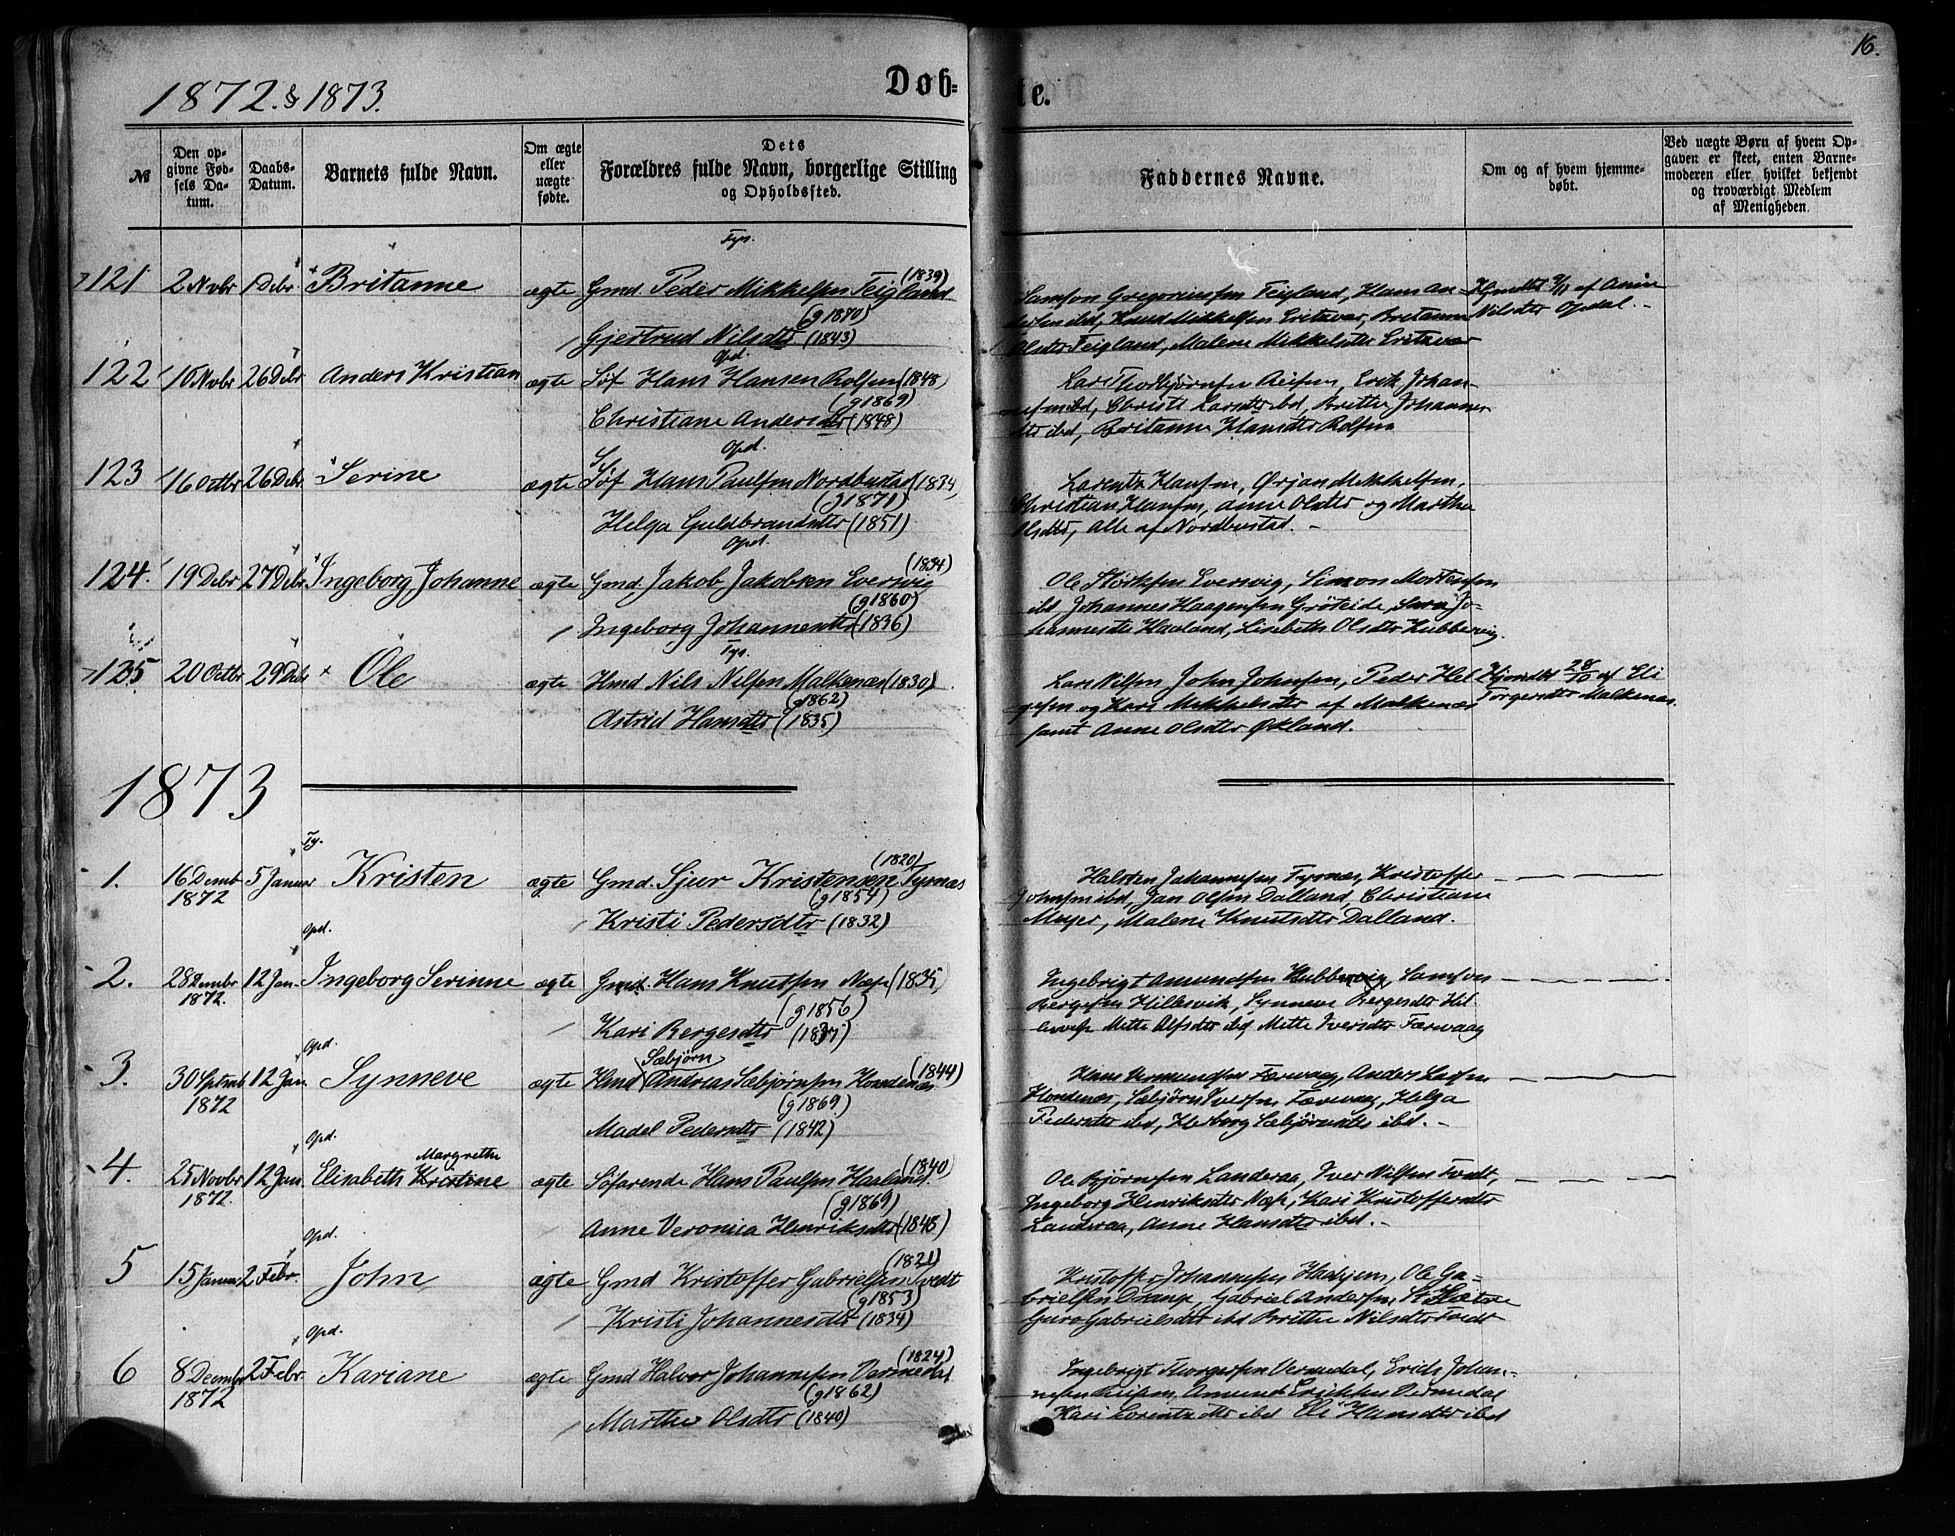 16.
1872. & 1873.
Døb=
te.
№
Den opgivne Fødsels Datum.
Daabs-Datum.
Barnets fulde Navn.
Om ægte eller uægte fødte.
Dets Forældres fulde Navn, borgerlige Stilling og Opholdssted.
Faddernes Navne.
Om og af hvem hjemmedøbt.
Ved uægte Børn af hvem Opgaven er skeet, enten Barnemoderen eller hvilket bekjendt og troværdigt Medlem af Menigheden.
Tys.
121 2 Novbr 1 Debr. Britanne ægte Gmd. Peder Mikkelsen Teigland (1839)
(g 1870)
Gjertrud Nilsdtr (1843)
Samson Gregoriussen Teigland, Hans An-
dersen ibd, Knud Mikkelsen Eritsvær, Britanna
Olsdtr Teigland, Malene Mikkelsdtr Eritsvær
Nilsdtr Opdal.
Opd.
122 10 Novbr 26 Debr Anders Kristian ægte Søf Hans Hansen Rolfsen (1848)
(g 1869)
Christiane Andersdtr (1848)
Lars Thorbjørnsen Reisen, Erik Johan-
nesen ibd, Christi Larsdtr ibd, Brithe Johannes
dtr ibd, Britanna Hansdtr Rolfsen
Opd.
123 16 Octbr 26 Debr. Serine ægte Søf Hans Paulsen Nordbustad (1834)
(g 1871)
Helga Guldbrandsdtr (1851)
Larentz Hansen, Ørjan Mikkelsen,
Christian Hansen, Anne Olsdtr og Marthe
Olsdtr, Alle af Nordbustad. -
Opd.
124. 19 Debr 27 Debr. Ingeborg Johanne ægte Gmd. Jakob Jakobsen Eversvig (1834)
(g 1860)
Ingeborg Johannesdtr (1836)
Ole Størksen Eversvig, Simon Mortensen
ibd, Johannes Haagensen Gröteide, Sara Jo-
hannesdtr Haaland, Lisebeth Olsdtr Hubbervig.
Tys.
125 20 Octbr 29 Debr Ole ægte Hmd Nils Nilsen Malkenæs (1830)
(g 1862)
Astrid Hansdtr (1835)
Lars Nilsen, John Johnsen, Peder Hel-
gesen og Kari Mikkelsdtr af Malkenæs
samt Anne Olsdtr Økland.
Hjmdbt 28/10 af Eli
Torgersdtr Malkenæs.
1873
Ty.
1. 16 Decmb 1872 5 Januar Kristen ægte Gmd. Sjur Kristensen Tysnæs (1820)
(g 1854)
Kristi Pedersdtr (1832)
Halsten Johannesen Tysnæs, Kristoffer
Johnsen ibd, Jan Olsen Dalland, Christiane
Meyer, Malene Knutsdtr Dalland.
Opd.
2. 28 Dcmbr 1872. 12 Jan. Ingeborg Serinne ægte Gmd. Hans Knutsen Næse (1835)
(g 1856)
Kari Bergesdtr
Ingebrigt Amundsen Hubbervig, Samson
Bergesen Hillesvik, Synneve Bergesdtr Hil-
lesvik Mette Alfsdtr ibd Mette Iversdtr Færvaag
Opd.
3. 30 Septmb 1872 12 Jan. Synneve ægte Hmd Andreas Sæbjørn Sæbjørnsen Hondenæs (1844)
(g 1869)
Madel Pedersdtr (1842)
Hans Amundsen Færvaag, Anders Larsen
Hondenæs, Sæbjørn Iversen Færvaag, Helga
Pedersdtr ibd, Herborg Sæbjørnsdtr ibd. -
Opd.
4. 25 Novbr 1872. 12 Jan. Elisabeth Kristine Margrethe ægte Søfarende Hans Paulsen Haaland. (1840)
(g 1869)
Anne Veronica Henriksdtr (1848)
Ole Bjørnsen Landeraa, Iver Nilsen Tvedt,
Ingeborg Henriksdtr Næse, Kari Kristoffersdtr
Landeraa, Anne Hansdtr ibd. -
Opd.
5 15 Januar 2 Febr. John ægte Gmd Kristoffer Gabrielsen Tvedt (1821)
(g 1853)
Kristi Johannesdtr (1834)
Kristoffer Johannesen Hadjem, Ole Ga-
brielsen Drange, Gabriel Andersen, St Sætre
Guro Gabrielsdtr ibd Brithe Nilsdtr Tvedt
Opd.
6 8 Decmbr 1872 2 Febr. Kariane ægte Gmd Halvor Johannesen Vermedal (1824)
(g 1862)
Marthe Olsdtr (1840)
Ingebrigt Thorgersen Vermedal, Erich Johan-
nesen Reisen, Amund Eriksen Vermedal
Kari Lorentzdtr ibd Eli Hansdtr ibd